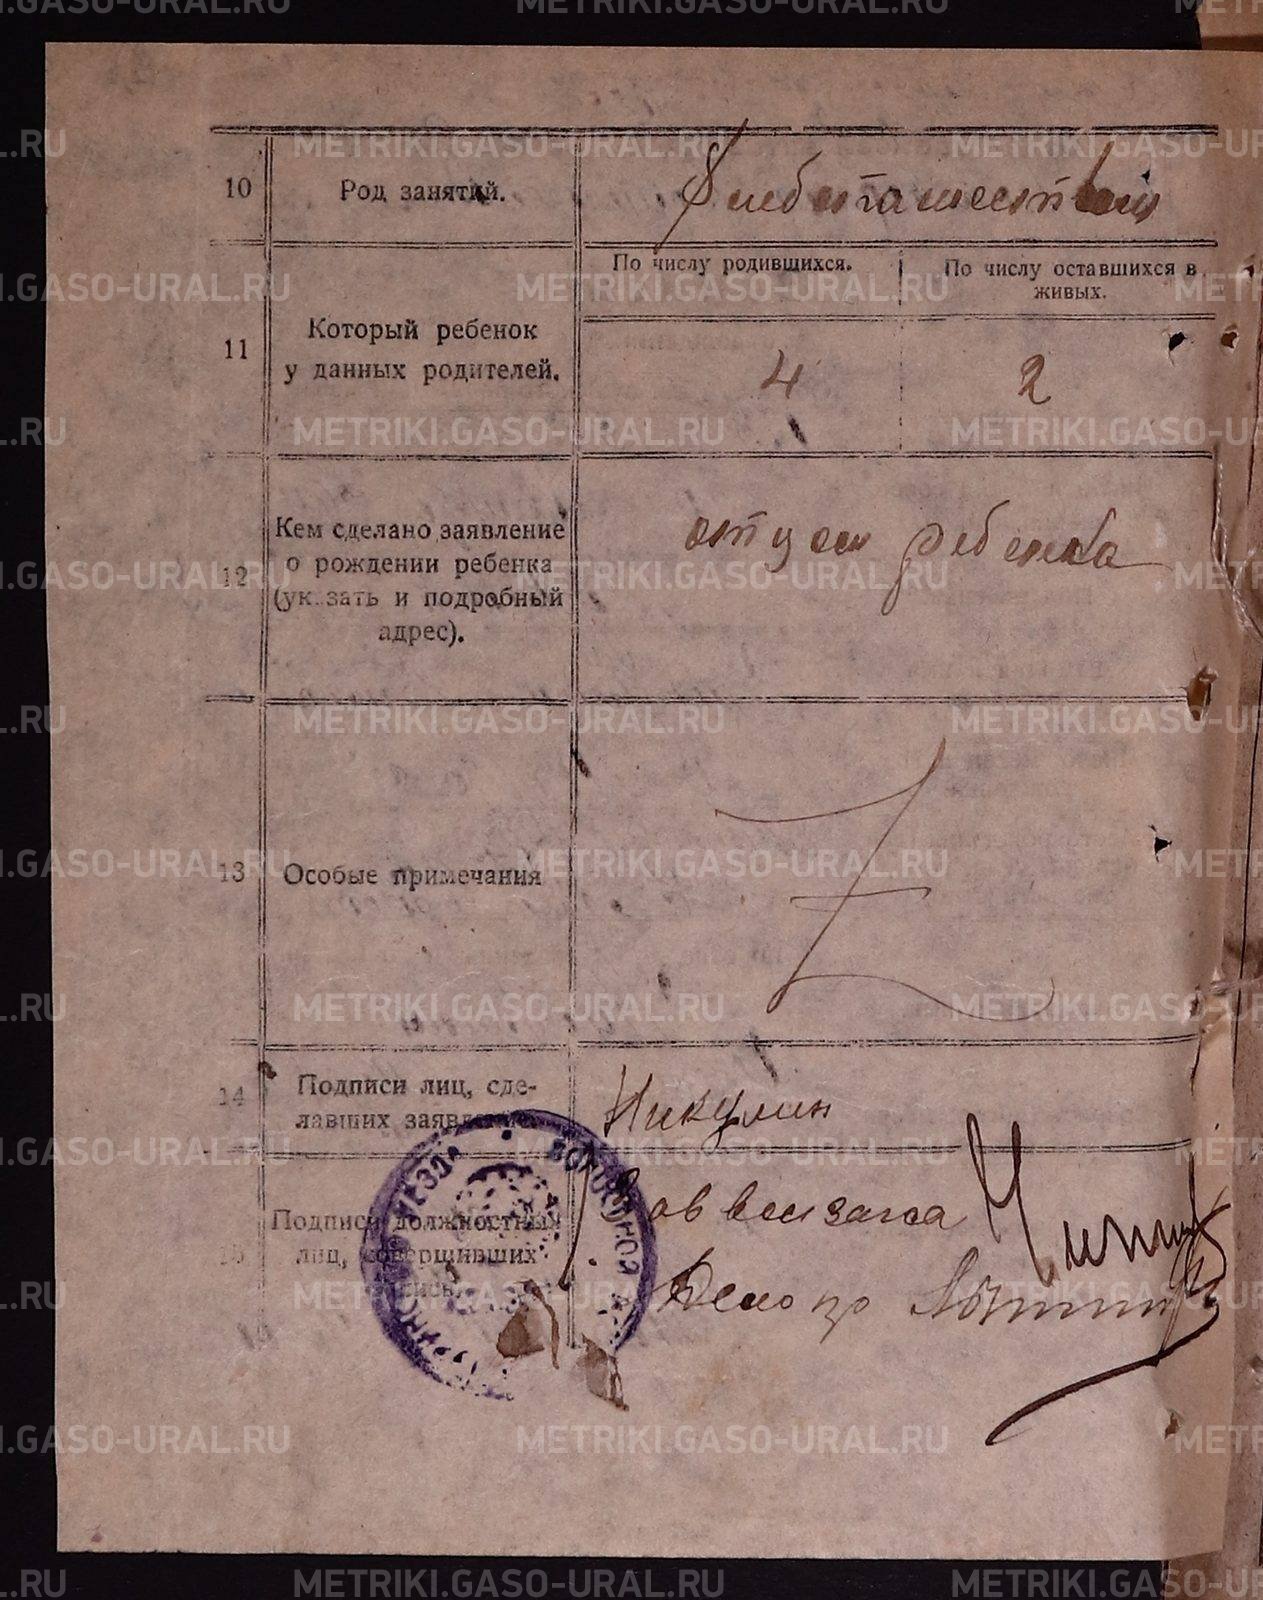 10
Род занятий.
Хлебопашеством
11
Который ребенок
у данных родителей.
По числу родившихся.
По числу оставшихся в
живых.
4
2
12
Кем сделано заявление
о рождении ребенка
(указать и подробный
адрес).
отцем ребенка
13
Особые примечания
14
Подписи лиц, сде-
лавших заявление.
Никулин
15
Подписи должностных
лиц, совершивших
запись.
Завзагса
Делопр
УЕЗДА
ВОЛОСТНОЙ
METRIKI.GASO-URAL.RU